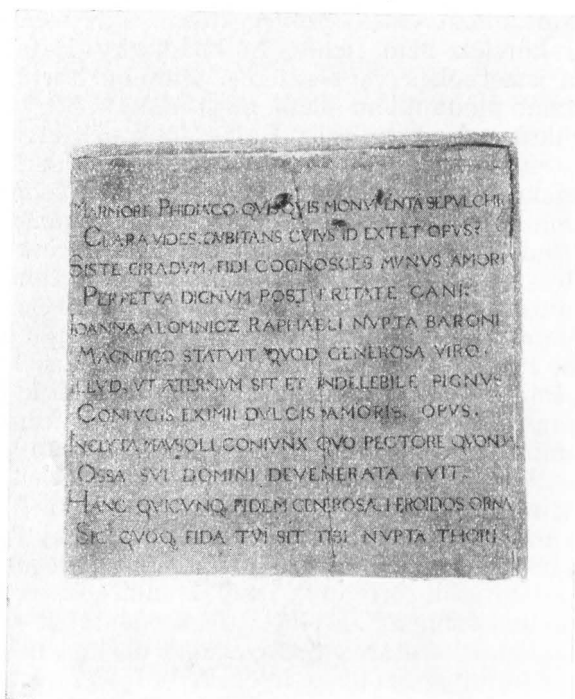 MARMORE PHIDIACO QVISQVIS MONVMENTA SEPVLCHRI
CLARA VIDES, DVBITANS CVIVS ID EXTET OPVS?
SISTE GRADVM, FIDI COGNOSCES MVNVS AMORIS
PERPETVA DIGNVM POSTERITATE CANI.
IOANNA A LOMNICZ RAPHAELI NVPTA BARONI
MAGNIFICO STATVIT QVOD GENEROSA VIRO.
ILLVD, VT ATERNVM SIT ET INDELEBILE PIGNVS
CONIVGIS EXIMII DVLCIS AMORIS, OPVS.
INCLYTA MAVSOLI CONIVNX QVO PECTORE QVONDA
OSSA SVI DOMINI DEVENERATA FVIT.
HANC QVICVNQ, FIDEM GENEROSAE HEROIDOS ORNA
SIC QVOQ, FIDA TVI SIT TIBI NVPTA THORI